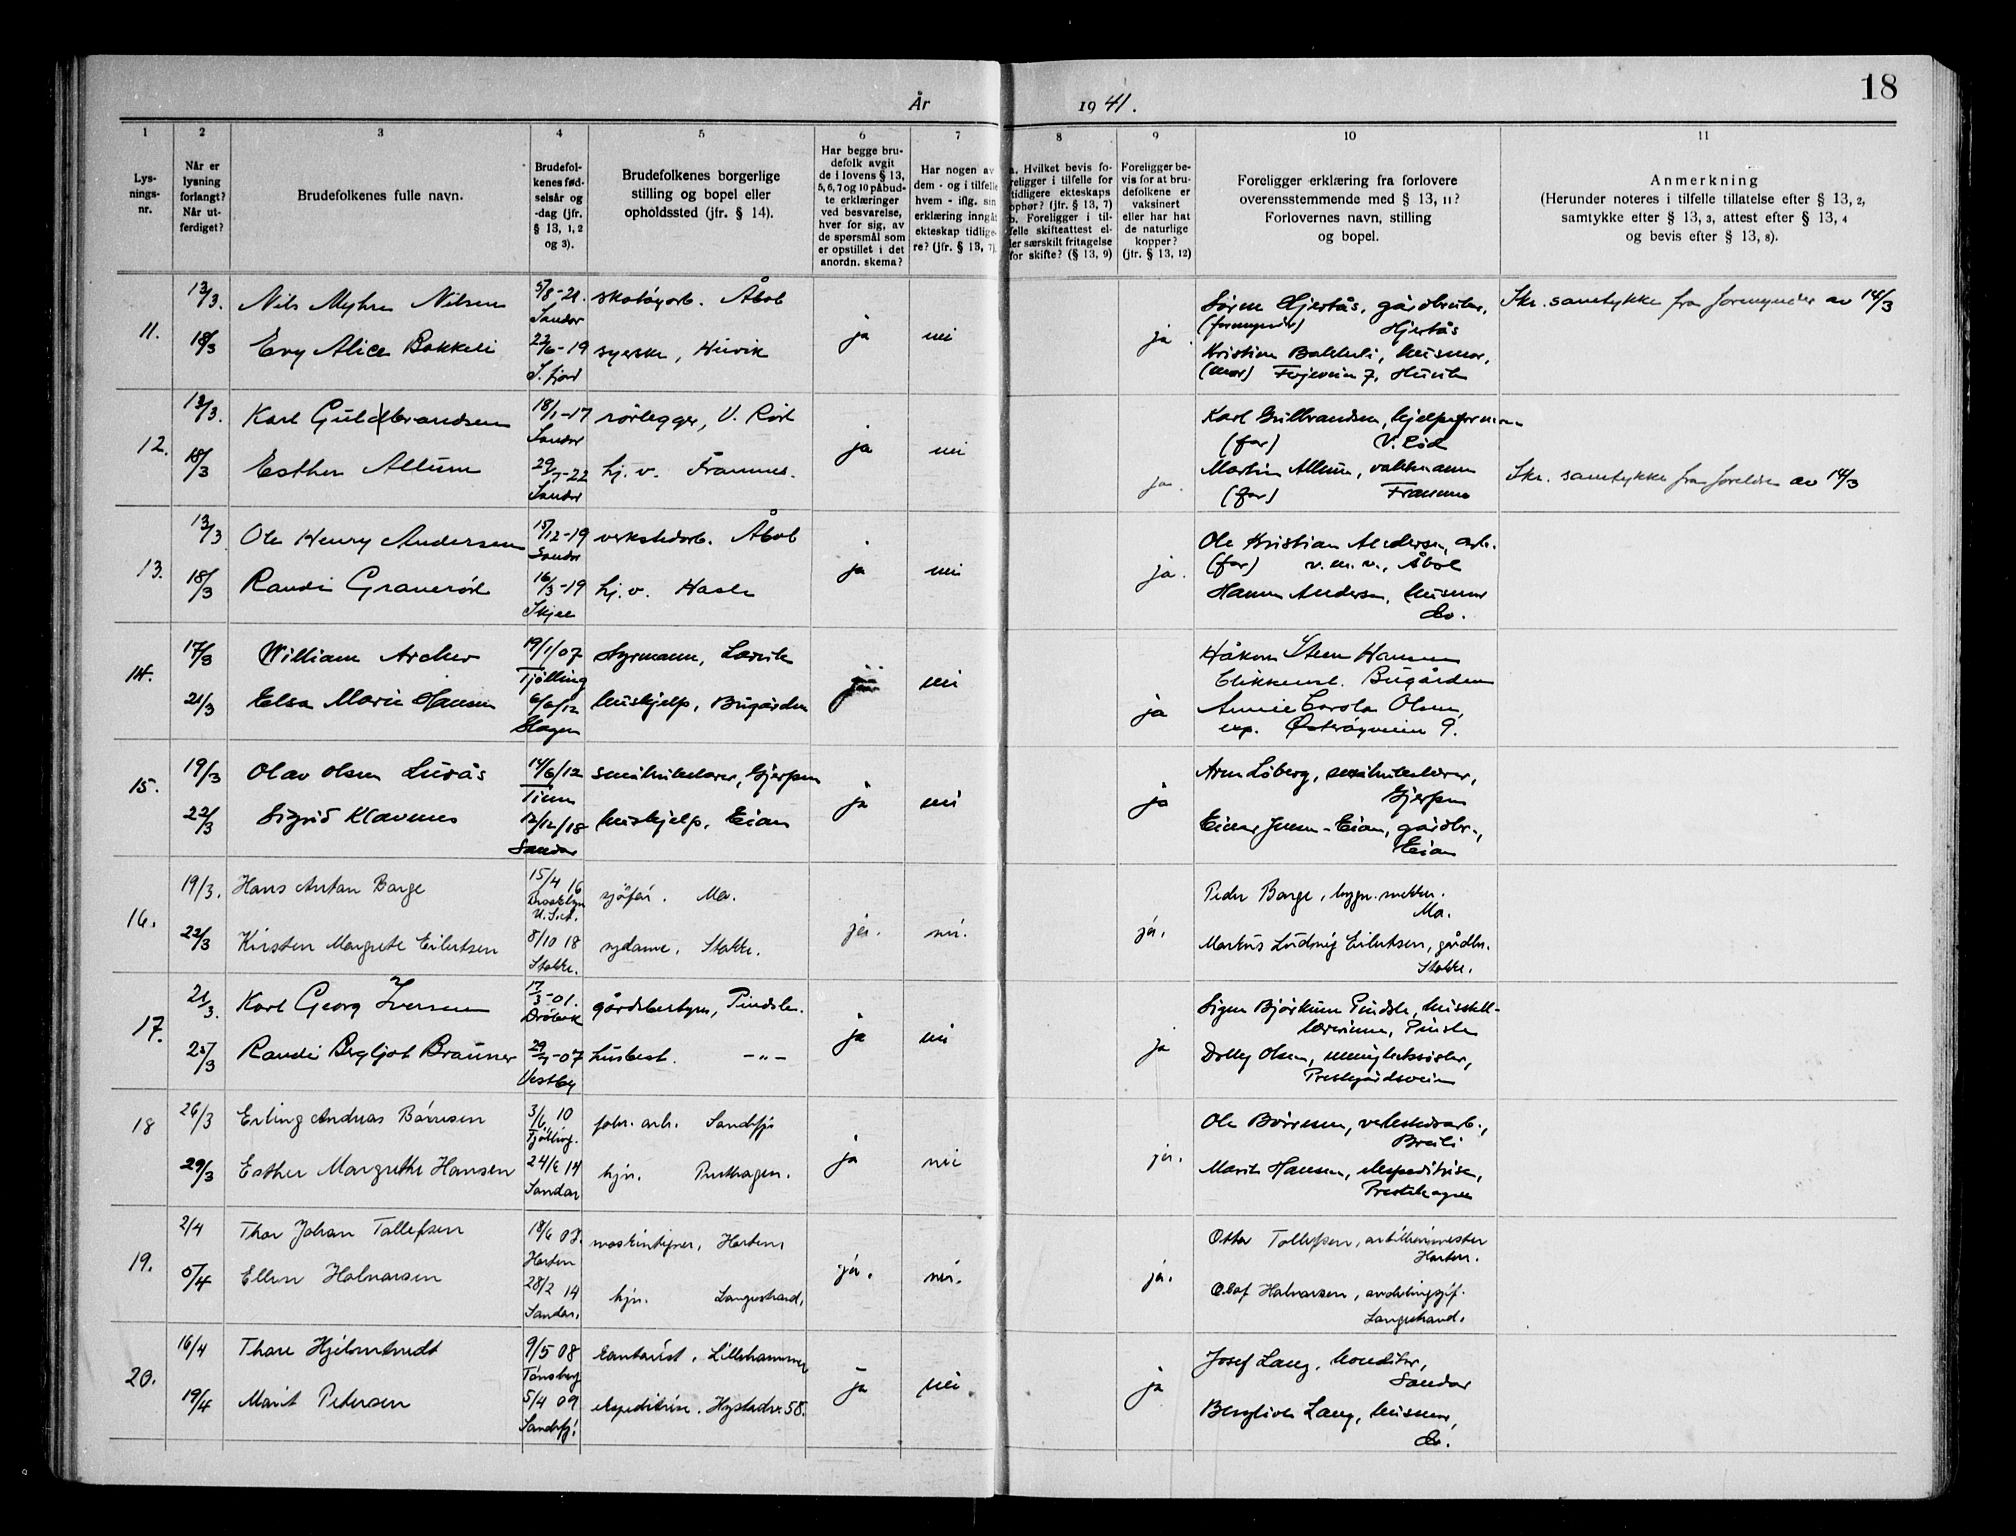 18
År 1941.
1 2 3 4 5 6 7 8 9 10 11
Lys-
nings-
nr.
Når er
lysning
forlangt?
Når ut-
ferdiget?
Brudefolkenes fulle navn.
Brudefol-
kenes fød-
selsår og
-dag (jfr.
§ 13, 1, 2
og 3).
Brudefolkenes borgerlige
stilling og bopel eller
opholdssted (jfr. § 14).
Har begge bru-
defolk avgit
de i lovens § 13,
5, 6, 7 og 10 påbud-
te erklæringer
ved besvarelse,
hver for sig, av
de spørsmål som
er opstillet i det
anordn. skema?
Har nogen av
dem - og i tilfelle
hvem - iflg. sin
erklæring inngåt
ekteskap tidlige-
re? (jfr. § 13, 7).
a. Hvilket bevis fo-
religger i tilfelle for
tidligere ekteskaps
ophør? (jfr. § 13, 7)
b. Foreligger i til-
felle skifteattest el-
ler særskilt fritagelse
for skifte? (§ 13, 9)
Foreligger be-
vis for at bru-
defolkene er
vaksinert
eller har hat
de naturlige
kopper?
(jfr. § 13, 12)
Foreligger erklæring fra forlovere
overensstemmende med § 13, 11?
Forlovernes navn, stilling
og bopel.
Anmerkning
(Herunder noteres i tilfelle tillatelse efter § 13, 2,
samtykke efter § 13, 3, attest efter § 13, 4
og bevis efter § 13, 8).
11.
13/3. Nils Myhre Nilsen 5/8-21. Sandar skotøyarb. Åbol
18/3 Evy Alice Bakkeli 22/6-19 S.fjord syerske, Huvik
ja nei ja
(formynder) Hjertås
Kristine Bakkeli, husmor,
(mor) 7, Huvik
Skr. samtykke fra formynder av 14/3
12.
13/3. Karl Guldbrandsen 18/1-17 Sandar rörlegger, V. Röd
18/3 Esther Allum 29/7-22 Sandar hj.v. Framnes.
ja nei ja.
Karl Gulbrandsen, hjelpeformann
(far) V. Röd
Martin Allum, vaktmann
(far) Framnes
Skr. samtykke fra foreldre av 14/3
13.
13/3 Ole Henry Andersen 15/12-19 Sandar verkstedarb. Åbol
18/3 Randi Graneröd 16/3-19 Skjee hj.v. Hasle
ja nei ja.
Ole Kristian Andersen, arb.
(far) v.m.v., Åbol
Hanna Andersen, husmor
do.
14.
17/3 William Archer 19/1/07 Tjölling styrmann, Larvik
21/3 Elsa Marie Hansen 6/6/12 Slagen hushjelp, Bugården
nei ja
Håkon Hansen
Blikkensl. Bugården
Annie Carola Olsen,
exp. Österöyveien 9.
15.
19/3 Olav Olsen Luvås 14/6/12 småbrukslærer, Gjerpen
22/3 Sigrid Klavenes 12/12/18 Sandar hushjelp, Eian
ja nei ja
Arne Löberg, småbrukslærer,
Gjerpen
Einar Jensen-Eian, gårdbr.,
Eian
16.
19/3. Hans Anton Barge 15/4 16 Brooklyn U.S.A. sjöfar. Mo.
22/3 Kirsten Margrete Eilertsen 8/10 18 Stokke. sydame. Stokke.
ja. nei. ja.
Peder Barge, bygn. snekker.
Mo.
Markus Ludvig Eilertsen, gårdbr.
Stokke.
17.
21/3. Karl Georg Iversen 17/3-01. Dröbak gårdsbestyrer, Pindsle.
25/3 Randi Bergljot Brauner 29/7-07 Vestby husbest. -"-
ja nei ja
Signe Björkum Pindsle, husstell-
lærerinne, Pinsle
Dolly Olsen, menighetssöster,
Prestegårdsveien
18
26/3 Erling Andreas Børresen 3/6 10 Tjölling. fabr. arb. Sandefj.
29/3 Esther Margrethe Hansen 24/6 14 Sandar hjv. Presthagen.
ja nei ja.
Ole Börresen, verkstedarb.,
Breili
Marit Hansen, ekspeditrise,
Prestehagen
19.
2/4 Thor Johan Tollefsen 18/6 07. Horten maskintegner, Horten,
5/4 Ellen Halvorsen 28/2 14 Sandar. hjv. Langestrand.
ja. nei. ja.
Otto Tollefsen, artillerimester
Horten.
Olaf Halvorsen, avdelingssjef.
Langestrand.
20.
16/4 Thore Hjelmtvedt 9/5 08 Tønsberg kontorist, Lillehammer
19/4 Marit Petersen 5/4 09 Sandefj. ekspeditrise. Hystadv. 58.
ja nei ja
Josef Lang, konditor,
Sandar
Bergliot Lang, husmor,
do.